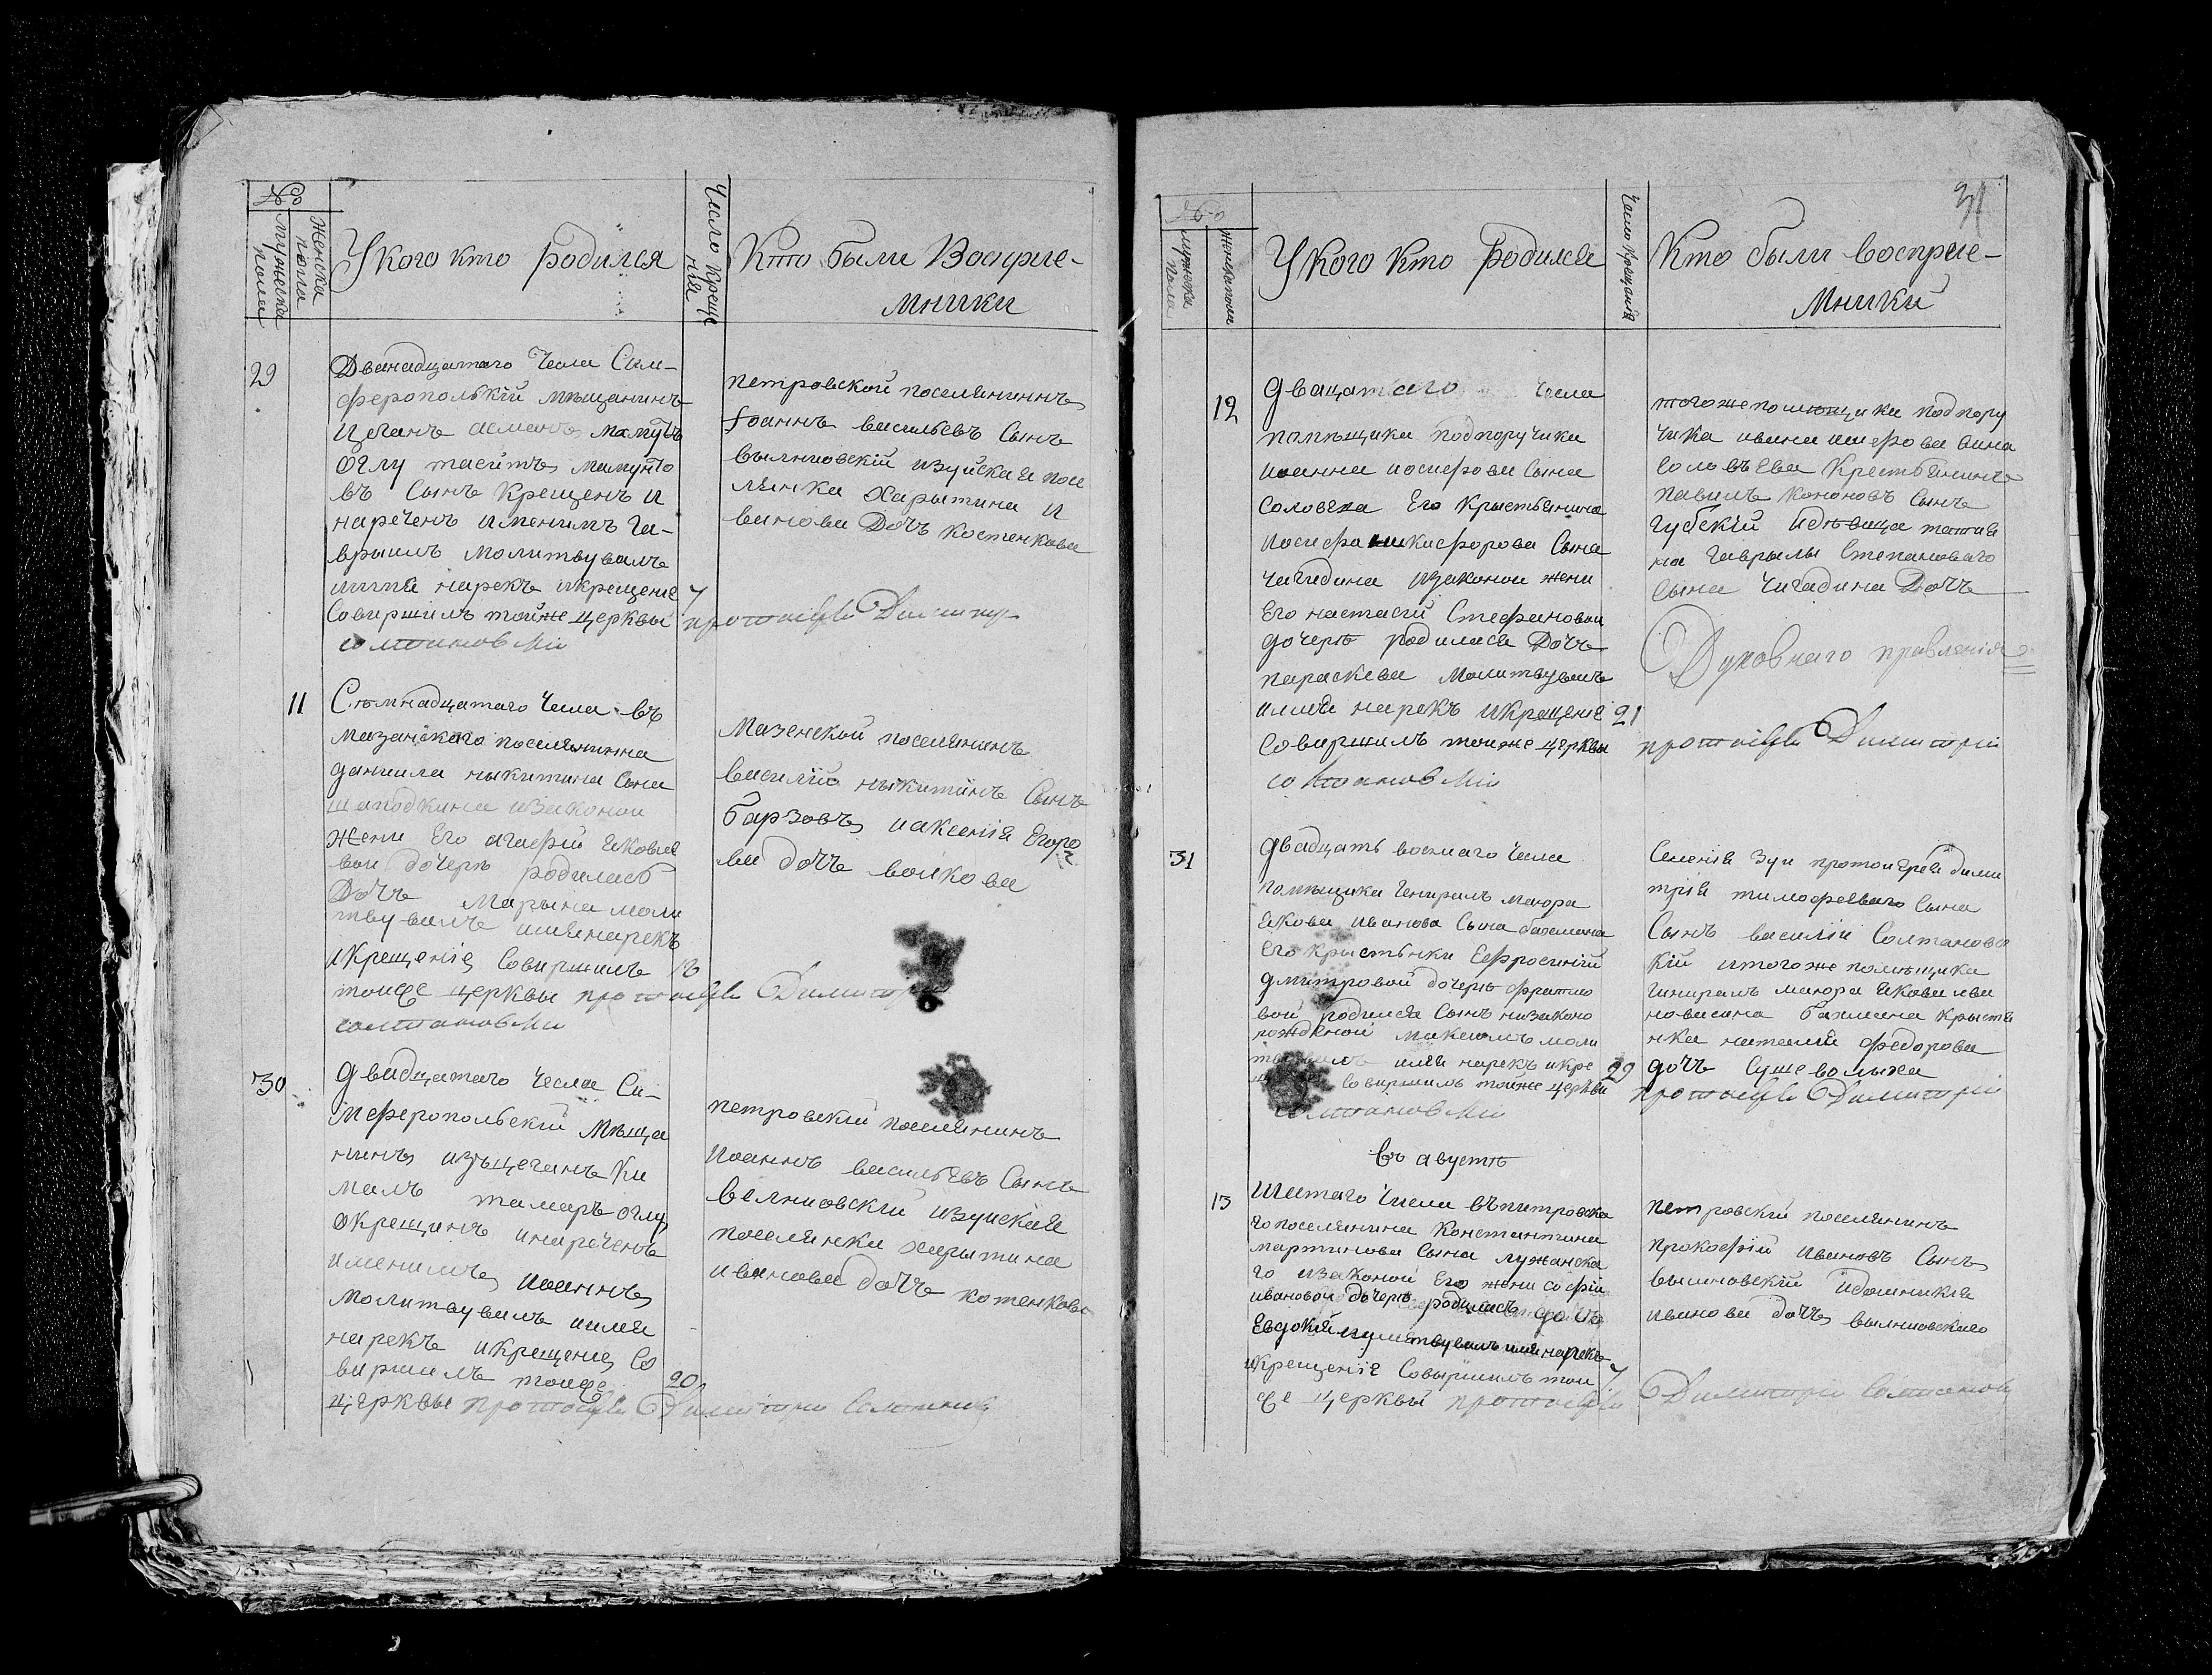 №
Мужеска пола
Женска пола
У кого кто родился
Число креще
ния
Кто были Восприе-
мники
29
Двенадцатаго Числа Сим-
феропольскій мѣщанинъ
Оглу
въ сынъ крещенъ и
нареченъ именимъ Га-
врыилъ молитвувалъ
имия нарекъ икрещение
Совиршилъ тойже церквы
7
протоиерей Димитри
солтановский
петровской поселянинъ
Іоаннъ васильевъ Сынъ
вылиновскій изуйская посе
лянки Харытина И
ванова Дочъ костенкова
11
Сѣмнадцатаго Числа въ
мазанскаго поселянина
данила ныкитина Сына
изаконои
жени Его агафии Яковле
вои дочерѣ родилась
Дочъ Марына моли
твувалъ имия нарекъ
икрещеніе Совиршилъ
тоиже церквы протоиерей Димитри
солтановский
Мазенской поселянинъ
василий ныкитинъ Сынъ
барзовъ иаксенія Егоро
ва дочъ волкова
30
двадцатаго Числа Си-
мферопольскій Мѣща
нинъ изъцеганъ
малъ тамаръ оглу
окрещинъ инареченъ
именимъ иоаннъ
Молитвувалъ имия
нарекъ икрещение Со
виршилъ тоиже
20
церквы протоиерей Димитри Солтановский
петровскій поселянинъ
иоаннъ васильевъ Сынъ
вылиновскій изуйская
поселянки харытина
иванова дочъ котенкова
31
№
мужеска пола
женска пола
У кого кто родился
Число крещания
Кто были восприе-
мники
12
двацатаго числа
памѣщика подпоручика
иоанна иосифова Сына
Соловева Его Крыстьянина
иосифа никифорова Сына
чигадина изаконои жени
Его настасий Стефановои
дочерѣ родилася Дочъ
параскева Молитвувалъ
имия нарекъ икрещение
21
Совиршилъ тоиже церквы
протоиерей Димитрий
солтановский
тогоже помѣщика подпору
чика ивана иосифова сина
Соловъева Крестьянинъ
павилъ кононовъ Сынъ
губскій идѣвица
на гаврылы Степановаго
сына Чигадина Дочъ
Духовнаго правления
31
двадцать восмаго числа
памѣщика Генералъ маюра
Якова иванова Сына бахмана
Его крыстьянки Ефросиний
дмитровой дочерѣ
вой родился Сынъ низаконо
рожденой Максимъ моли
имя нарекъ икре
29
Совиршилъ тойже церквы
протоиерей Димитрий
солтановский
Селенія Зуи протоиерея дими
трія тимофееваго Сына
Сынъ василій Солтановс
кій итогоже помѣщика
гинералъ маюра Якова ива
новасина бахмана крыстя
нка наталия федорова
дочъ
Въ августѣ
13
Шестаго числа въпитровска
го поселянина Константина
мартинова Сына лужанска
го изаконой Его жени софіи
ивановой дочерѣ родилась дочъ
Евдокия молитвувалъ имя нарекъ
икрещеніе Совыршилъ тои
7
же церквы протоиерей Димитрий Солтановский
петровскій поселянинъ
прокофій ивановъ Сынъ
вылиновскій идоминикия
иванова дочъ вылиновскаго